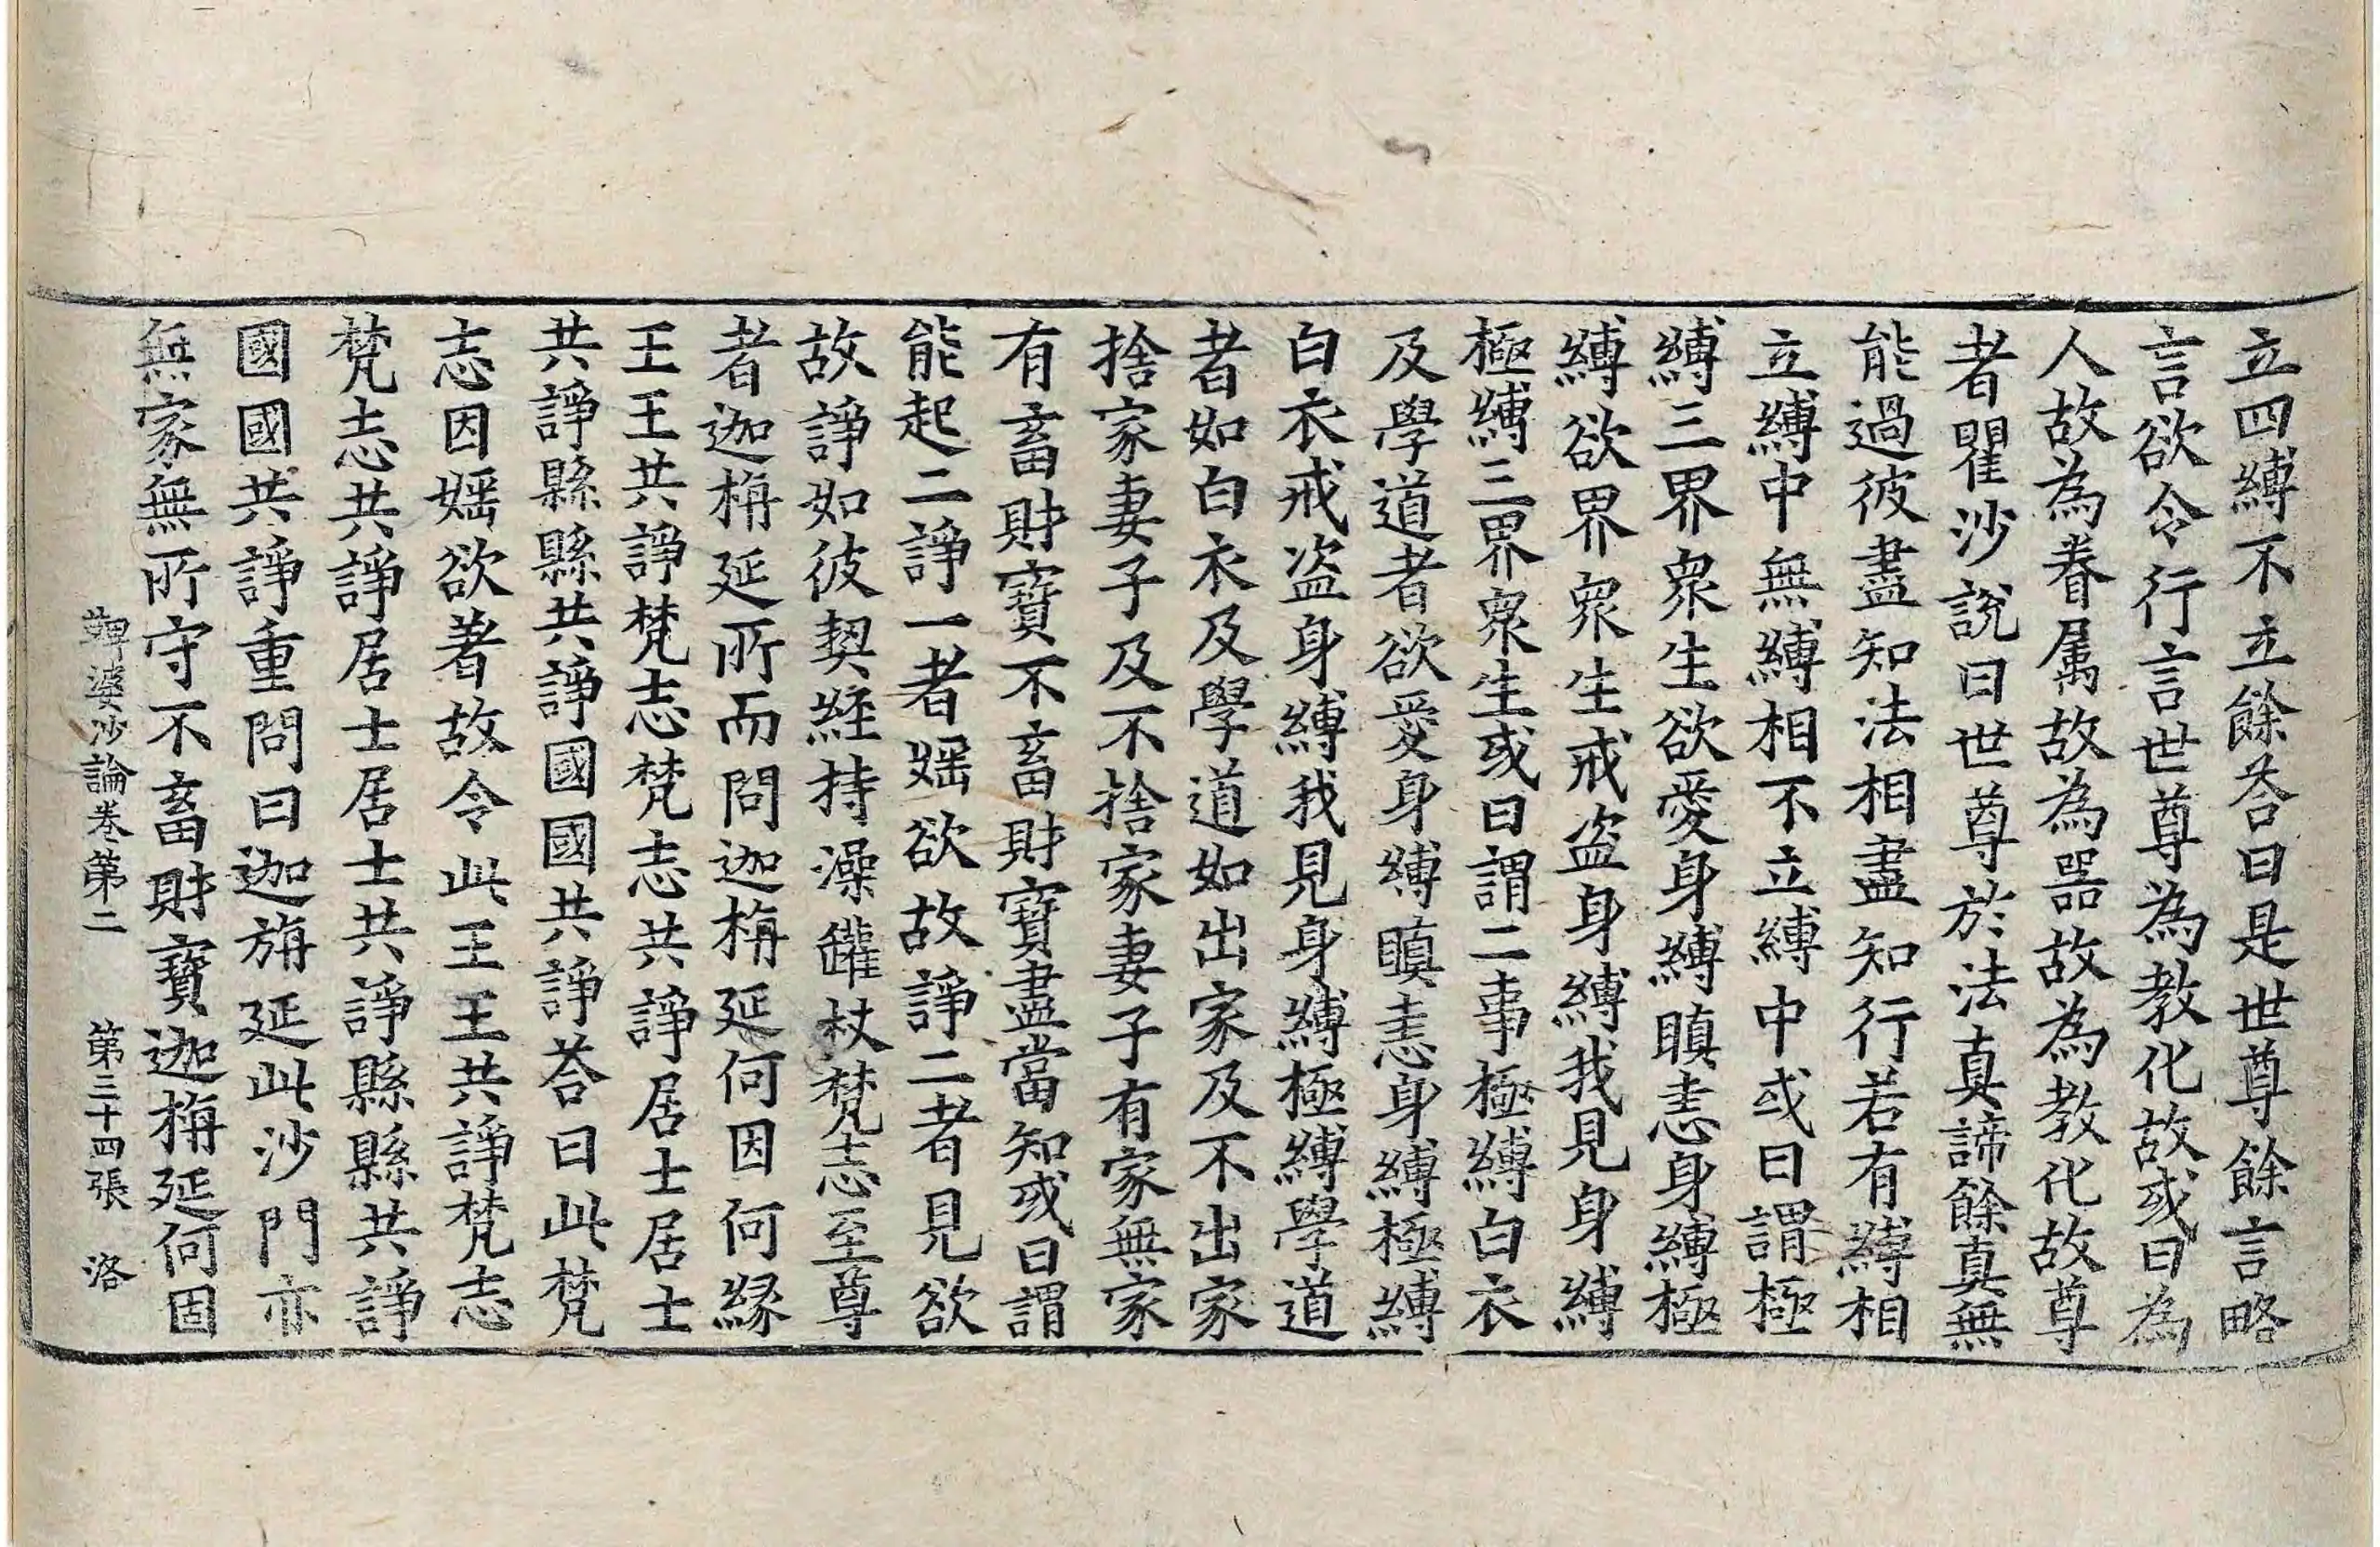 立四縛不立餘荅曰是世尊餘言略
言欲令行言世尊為教化故或曰為
人故為眷属故為器故為教化故尊
者瞿沙說曰世尊於法真諦餘真無
能過彼盡知法相盡知行若有縛相
立縛中無縛相不立縛中或曰謂極
縛三界衆生欲愛身縛瞋恚身縛極
縛欲界衆生戒盗身縛我見身縛
極縛三界衆生或曰謂二事極縛白衣
及學道者欲愛身縛瞋恚身縛極縛
白衣戒盗身縛我見身縛極縛學道
者如白衣及學道如出家及不出家
捨家妻子及不捨家妻子有家無家
有畜財寶不畜財寶盡當知或曰謂
能起二諍一者婬欲故諍二者見欲
故諍如彼契經持澡罐杖梵志至尊
者迦栴延所而問迦栴延何因何縁
王王共諍梵志梵志共諍居士居士
共諍縣縣共諍國國共諍荅曰此梵
志因婬欲著故令此王王共諍梵志
梵志共諍居士居士共諍縣縣共諍
國國共諍重問曰迦旃延此沙門亦
無家無所守不畜財寶迦栴延何因
鞞婆沙論卷第二 第三十四張 洛